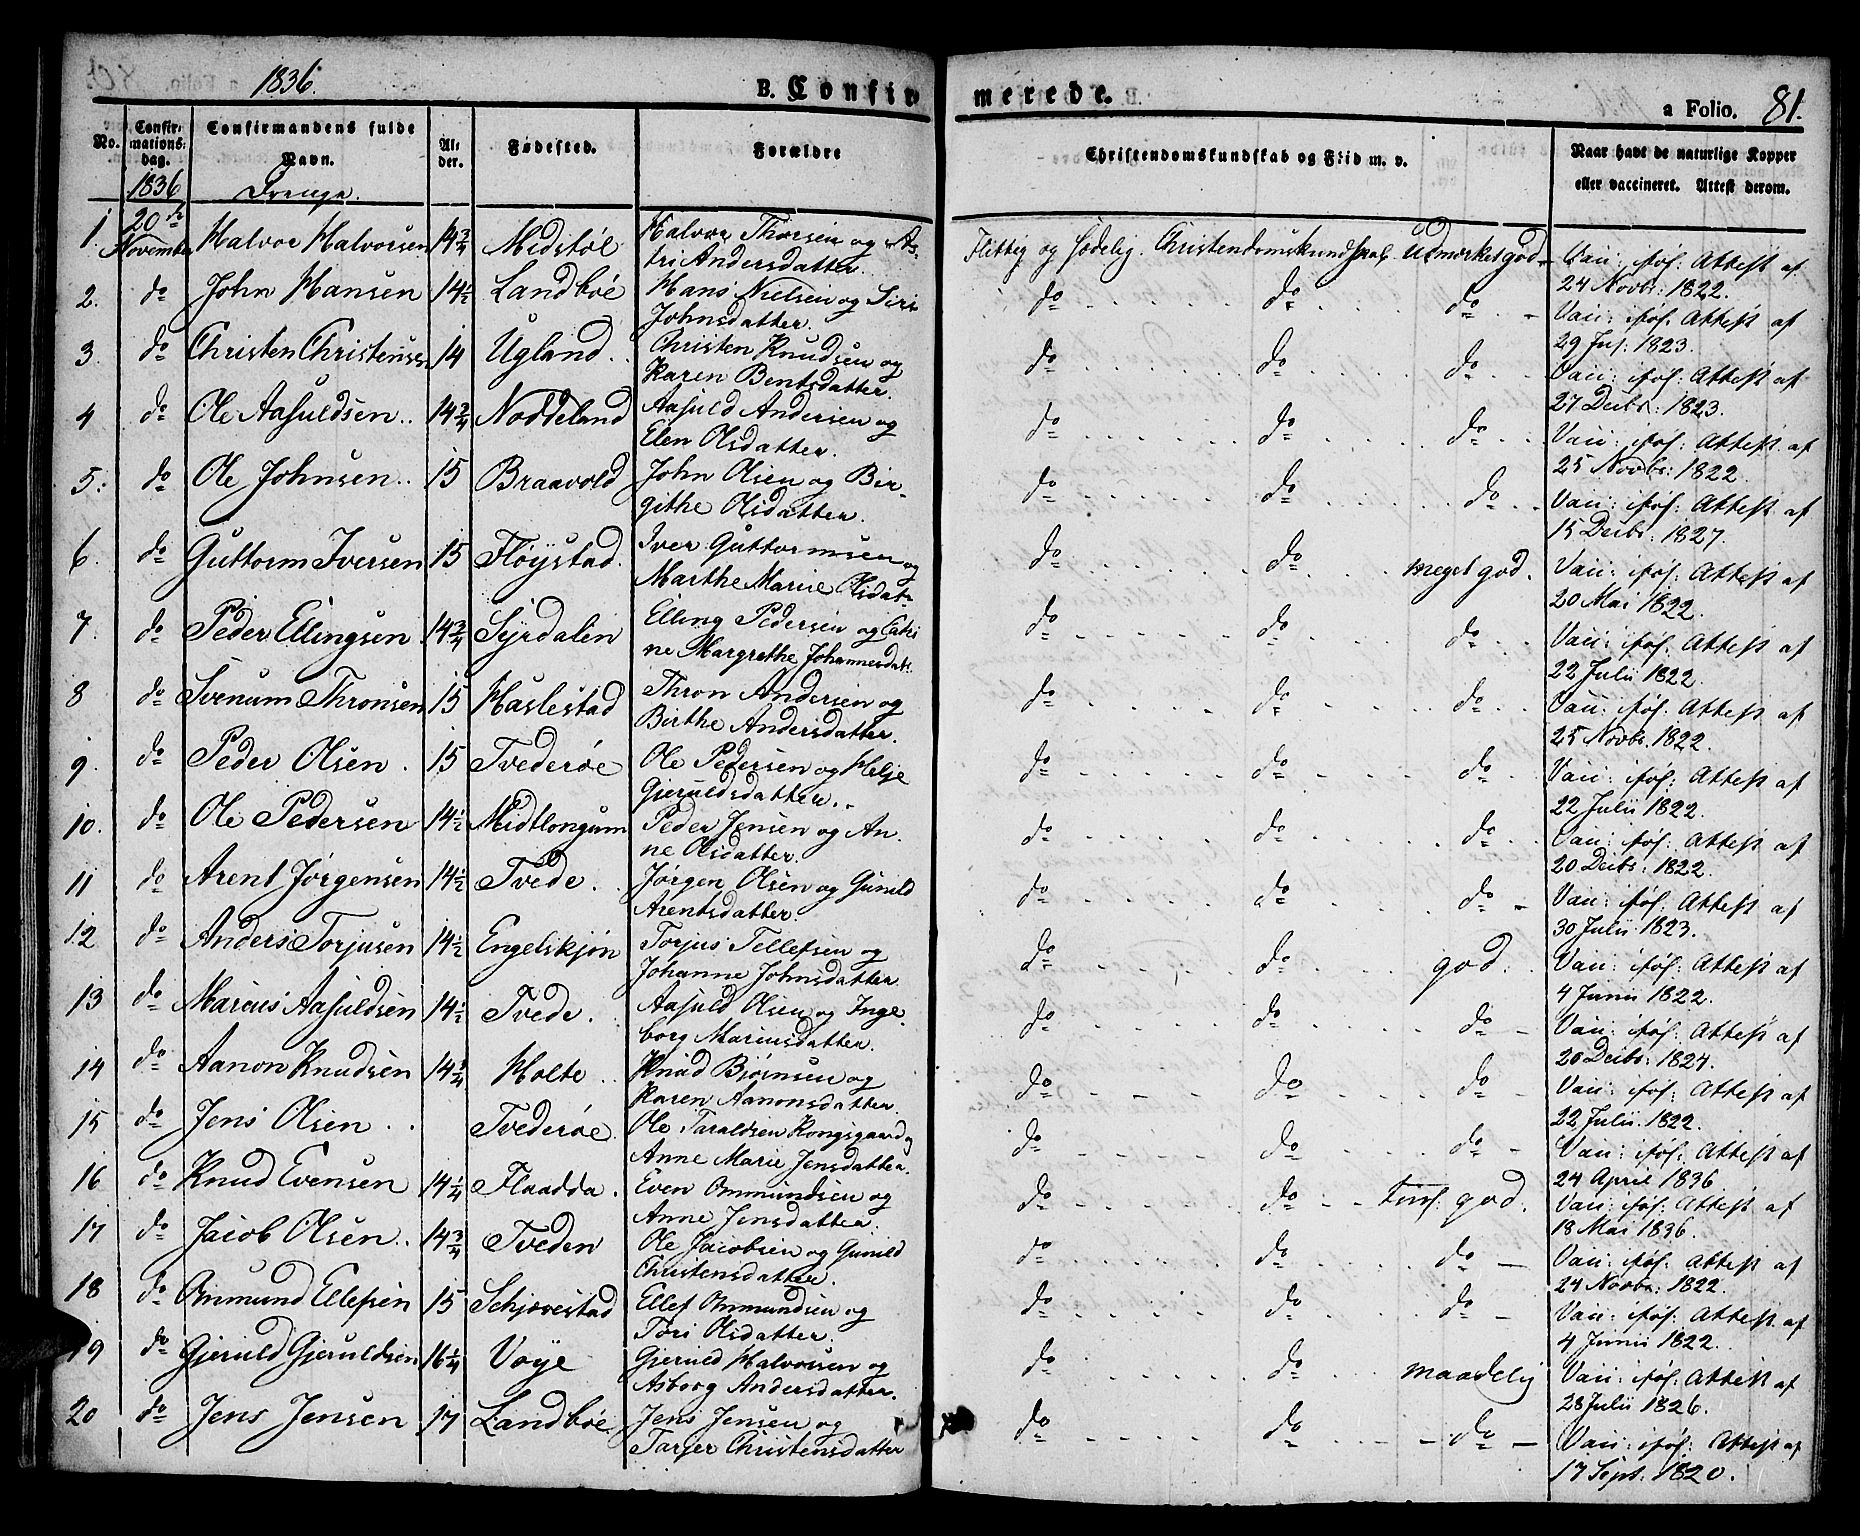 1836.
B. Confir
merede.
a Folio. 81.
No.
Confir-
mations-
dag.
Confirmandens fulde
Navn.
Al-
der.
Fødested.
Forældre
Christendomskundskab og Flid m. v.
Naar havt de naturlige Kopper
eller vaccineret. Attest derom.
1836 Drenge.
1. 20de November Halvor Halvorsen 14 3/4 Midstøl Halvor Thorsen og As-
tri Andersdatter. Flittig og sædelig. Christendomskundskab Udmærket god. Vacc: iføl: Attest af
24 Novbr: 1822.
2. do John Hansen 14 1/2 Landbøe Hans Nielsen og Siri
Johnsdatter. do do do Vacc: iføl: Attest af
29 Jul: 1823.
3. do Christen Christensen 14 Ugland. Christen Knudsen og
Karen Bentsdatter. do do do Vacc: iføl: Attest af
27 Decbr: 1823.
4 do Ole Aasuldsen 14 3/4 Noddeland Aasuld Andersen og
Elen Olsdatter. do do do Vacc: iføl: Attest af
25 Novbr: 1822.
5. do Ole Johnsen 15 Braavold John Olsen og Bir-
githe Olsdatter. do do do Vacc: iføl: Attest af
15 Decbr: 1827.
6 do Guttorm Iversen 15 Fløystad. Iver Guttormsen og
Marthe Marie Olsdat: do do meget god. Vacc: iføl: Attest af
20 Mai 1822.
7. do Peder Ellingsen 14 3/4 Syrdalen Elling Pedersen og Cathi
ne Margrethe Johannesdat: do do do Vacc: iføl: Attest af
22 Julii 1822.
8 do Svenum Thronsen 15 Haslestad Thron Andersen og
Birthe Andersdatter. do do do Vacc: iføl: Attest af
25 Novbr. 1822.
9. do Peder Olsen 15 Tvederøe Ole Pedersen og Helje
Gjeruldsdatter. do do do Vacc: iføl: Attest af
22 Julii 1822.
10. do Ole Pedersen 14 1/2 Midtlongum Peder Jensen og An-
ne Olsdatter. do do do Vacc: iføl: Attest af
20 Decbr: 1822.
11 do Arent Jørgensen 14 1/2 Tvede. Jørgen Olsen og Gunild
Arentsdatter. do do do Vacc: iføl: Attest af
30 Julii 1823.
12 do Anders Torjusen 14 1/2 Engelskjøn Torjus Tellefsen og
Johanne Johnsdatter do do god. Vacc: iføl: Attest af
4 Junii 1822.
13 do Marcus Aasuldsen 14 1/2 Tvede. Aasuld Olsen og Inge-
borg Marcusdatter. do do do Vacc: iføl: Attest af
20 Decbr: 1824.
14 do Aanon Knudsen 14 3/4 Holte Knud Bjørnsen og
Karen Aanonsdatter. do do do Vacc: iføl: Attest af
22 Julii 1822.
15 do Jens Olsen Tvederøe. Ole Taraldsen Kongsgaard og
Anne Marie Jensdatter. do do do Vacc: iføl: Attest af
24 April 1836
16 do Knud Evensen 14 1/4 Flaadda. Even Ommundsen og
Anne Jensdatter. do do god. Vacc: iføl: Attest af
18 Mai 1836.
17 do Jacob Olsen 14 3/4 Tveden Ole Jacobsen og Gunild
Christensdatter. do do do Vacc: iføl: Attest af
24 Novbr. 1822.
18 do Ommund Ellefsen 15 Schjovestad Ellef Ommundsen og
Tori Olsdatter. do do do Vacc: iføl: Attest af
4 Junii 1822.
19 do Gjeruld Gjeruldsen 16 1/4 Voye Gjeruld Halvorsen og
Asborg Andersdatter. do do maadelig Vacc: iføl: Attest af
28 Julii 1826.
20 do Jens Jensen 17 Landbøe. Jens Jensen og
Tarjer Christensdatter do do do Vacc: iføl: Attest af
17 Sept. 1820.